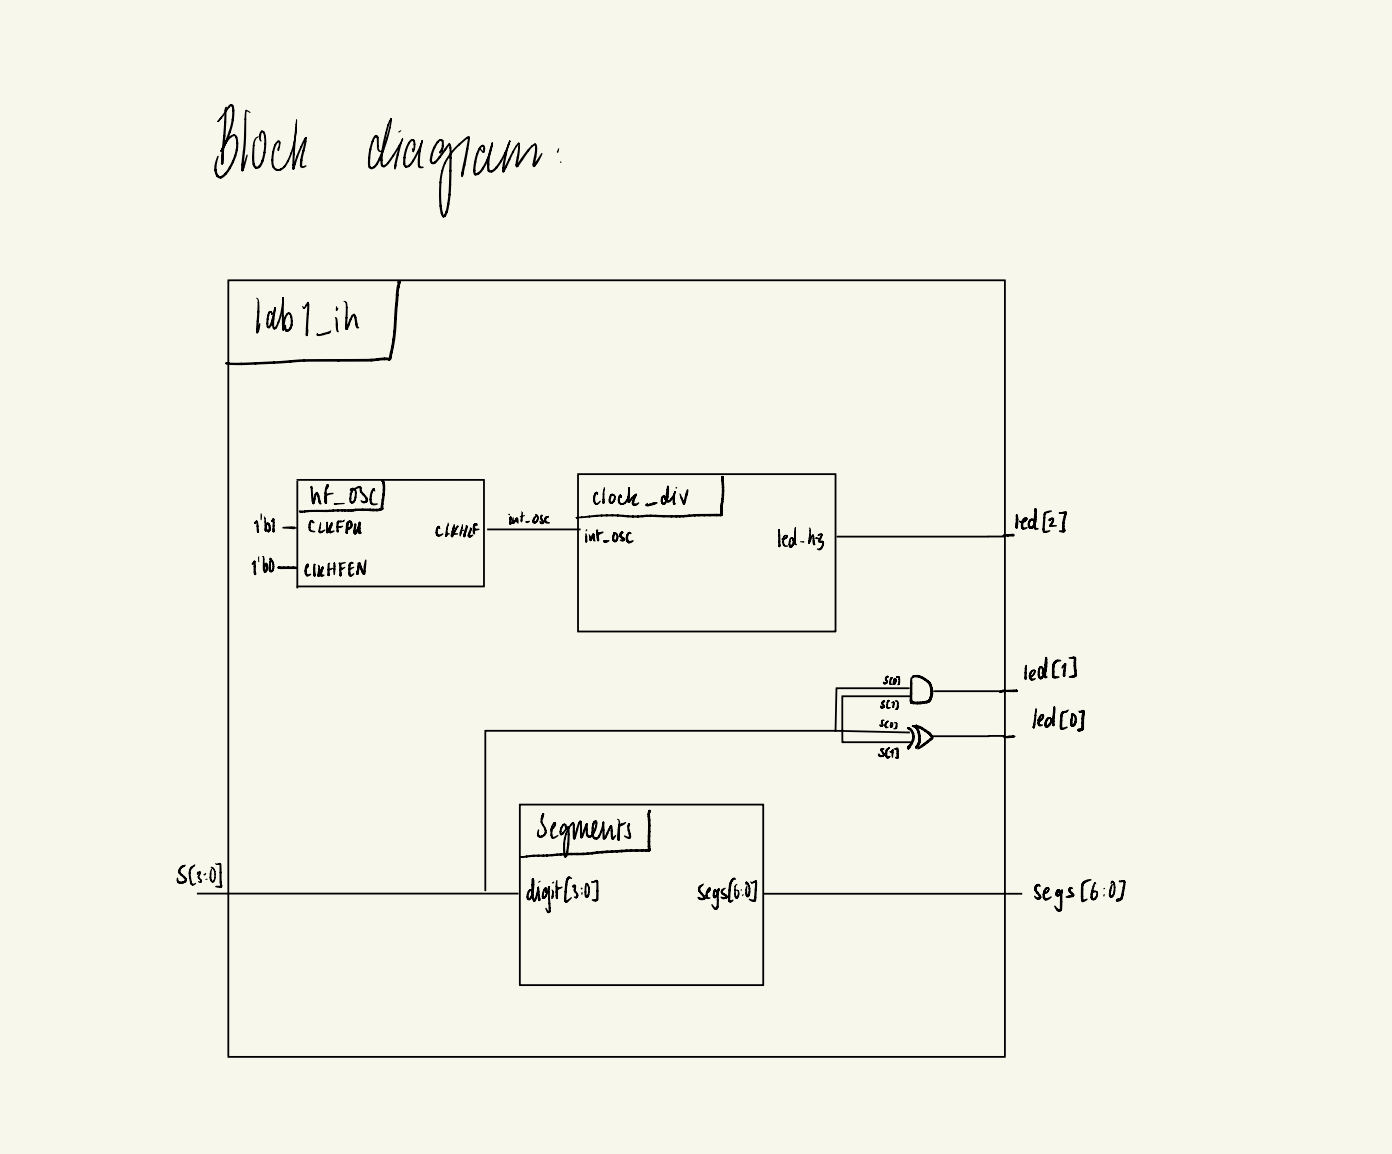 Block diagram:
lab1_ih
hf_osc
1'b1
CLKFPU
CLKHF
1'b0
CLKHFEN
int_osc
clock_div
int_osc
led_hz
led[2]
S[0]
S[1]
led[1]
S[0]
S[1]
led[0]
Segments
S[3:0]
digit[3:0]
segs[6:0]
segs[6:0]